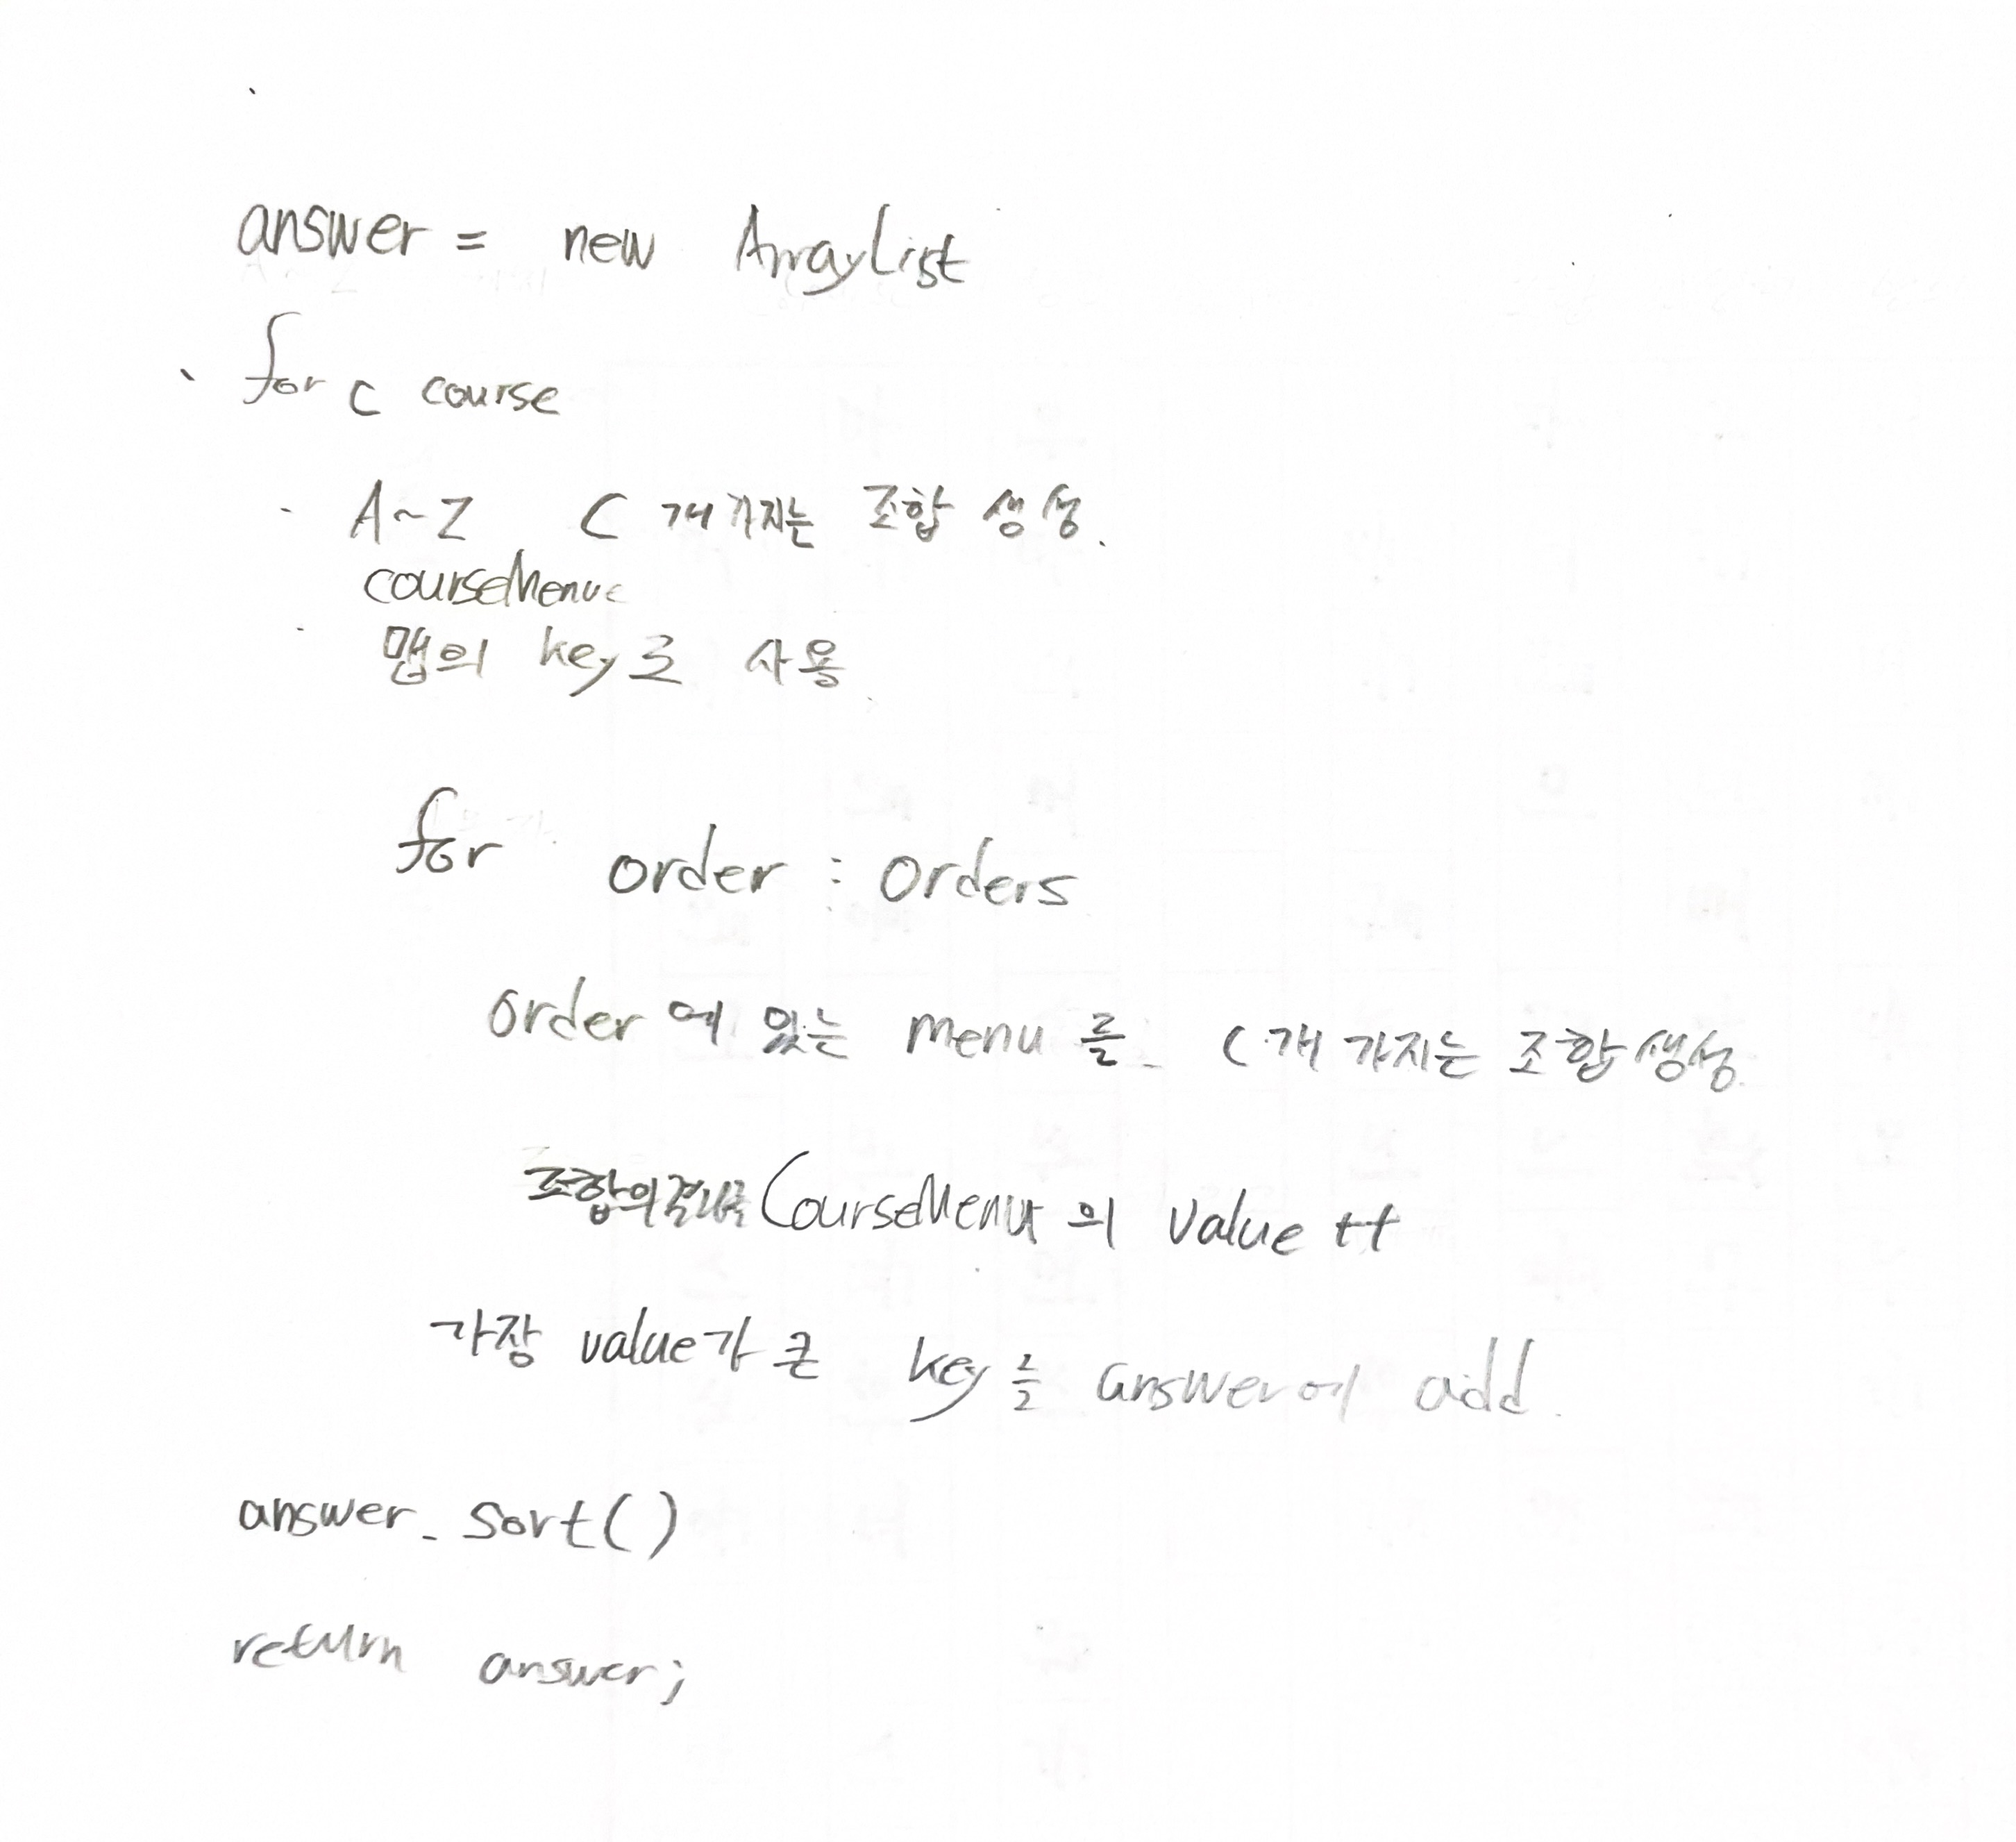 answer = new ArrayList
for c course
A~Z C개 가지는 조합 생성.
courseMenu
맵의 key로 사용
for order : orders
order에 있는 menu를 C개 가지는 조합생성
조합의 CourseMenu의 value ++
가장 value가 큰 key를 answer에 add.
answer. sort()
return answer;